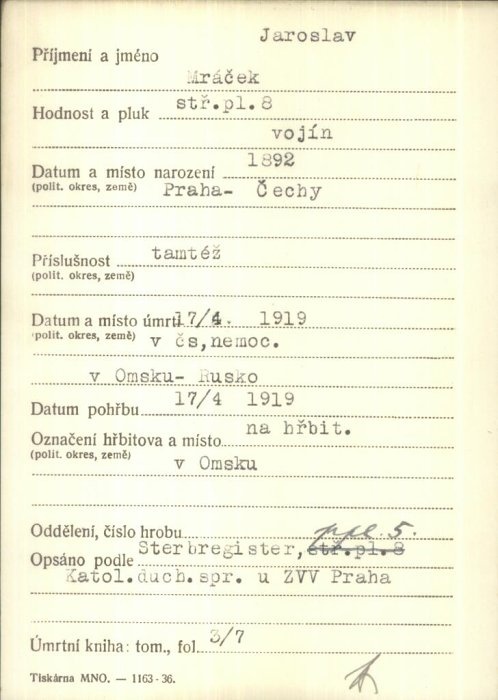 Jaroslav
Příjmení a jméno
Mráček
Hodnost a pluk stř.pl.8
vojín
Datum a místo narození 1892
(polit. okres, země) Praha- Čechy
Příslušnost tamtéž
(polit. okres, země)
Datum a místo úmrtí 17/4. 1919
(polit. okres, země) v čs,nemoc.
v Omsku- Rusko
Datum pohřbu 17/4 1919
Označení hřbitova a místo na hřbit.
(polit. okres, země) v Omsku
Oddělení, číslo hrobu ppl. 5.
Opsáno podle Sterbregister, stř.pl.8
Katol.duch.spr. u ZVV Praha
Úmrtní kniha: tom., fol. 3/7
Tiskárna MNO. — 1163-36.